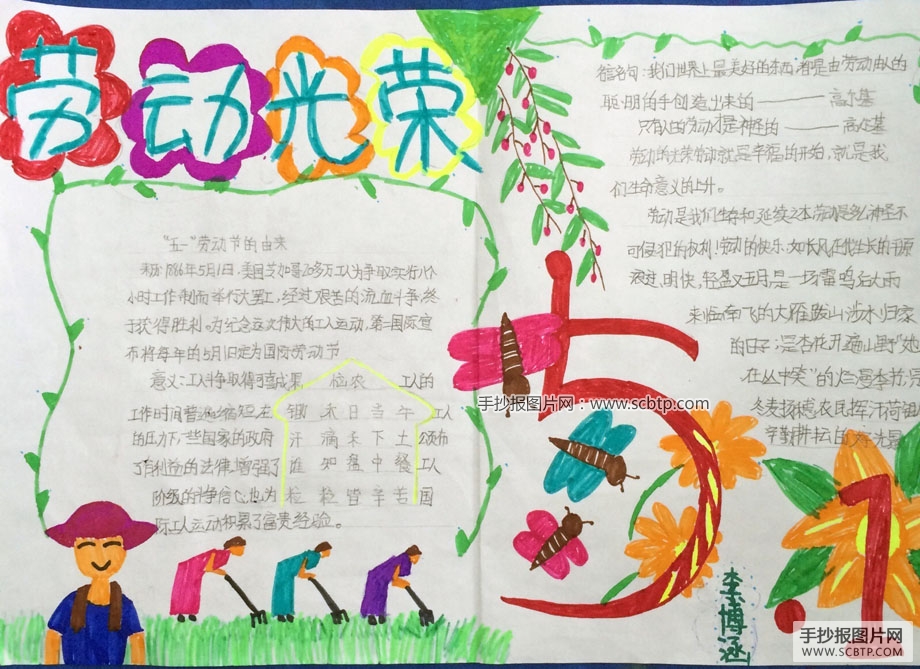 劳动光荣
"五一"劳动节的由来
1886年5月1日,美国芝加哥20多万工人为争取实行八个
小时工作制而举行大罢工,经过艰苦的流血斗争,终
于获得胜利。为纪念这次伟大的工人运动,第二国际宣
布将每年的5月1定为国际劳动节
意义:工人争取得了喜成果
工人的
悯农
工作时间普遍缩短,在
工人
锄禾日当午
的压力下,些国家的政府
颁布
汗滴禾下土
了有利益的法律,增强了
工人
谁知盘中餐
阶级的斗争信心,也为
国
粒粒皆辛苦
际工人运动积累了富贵经验。
名句:我们世界上最美好的东西,都是由劳动由人的
聪明的手创造出来的——高尔基
只有人的劳动才是神圣的——高尔基
劳动的光荣劳动就是幸福的开始,就是我
们生命意义的上升。
劳动是我们生存和延续之本,劳动是多么神圣不
可侵犯的权利!劳动的快乐,如长风在我生长的平原
滚过,明快,轻盈又五月是一场雷鸣后大雨
来临南飞的大雁,跋山涉水归家
的日子;是杏花开遍山野"她
在丛中笑"的烂漫季节;是
冬麦扬穗,农民挥汗荷锄
辛勤耕耘的好光景
5.1
李博涵
手抄报图片网:www.scbtp.com
手抄报图片网
WWW.SCBTP.COM